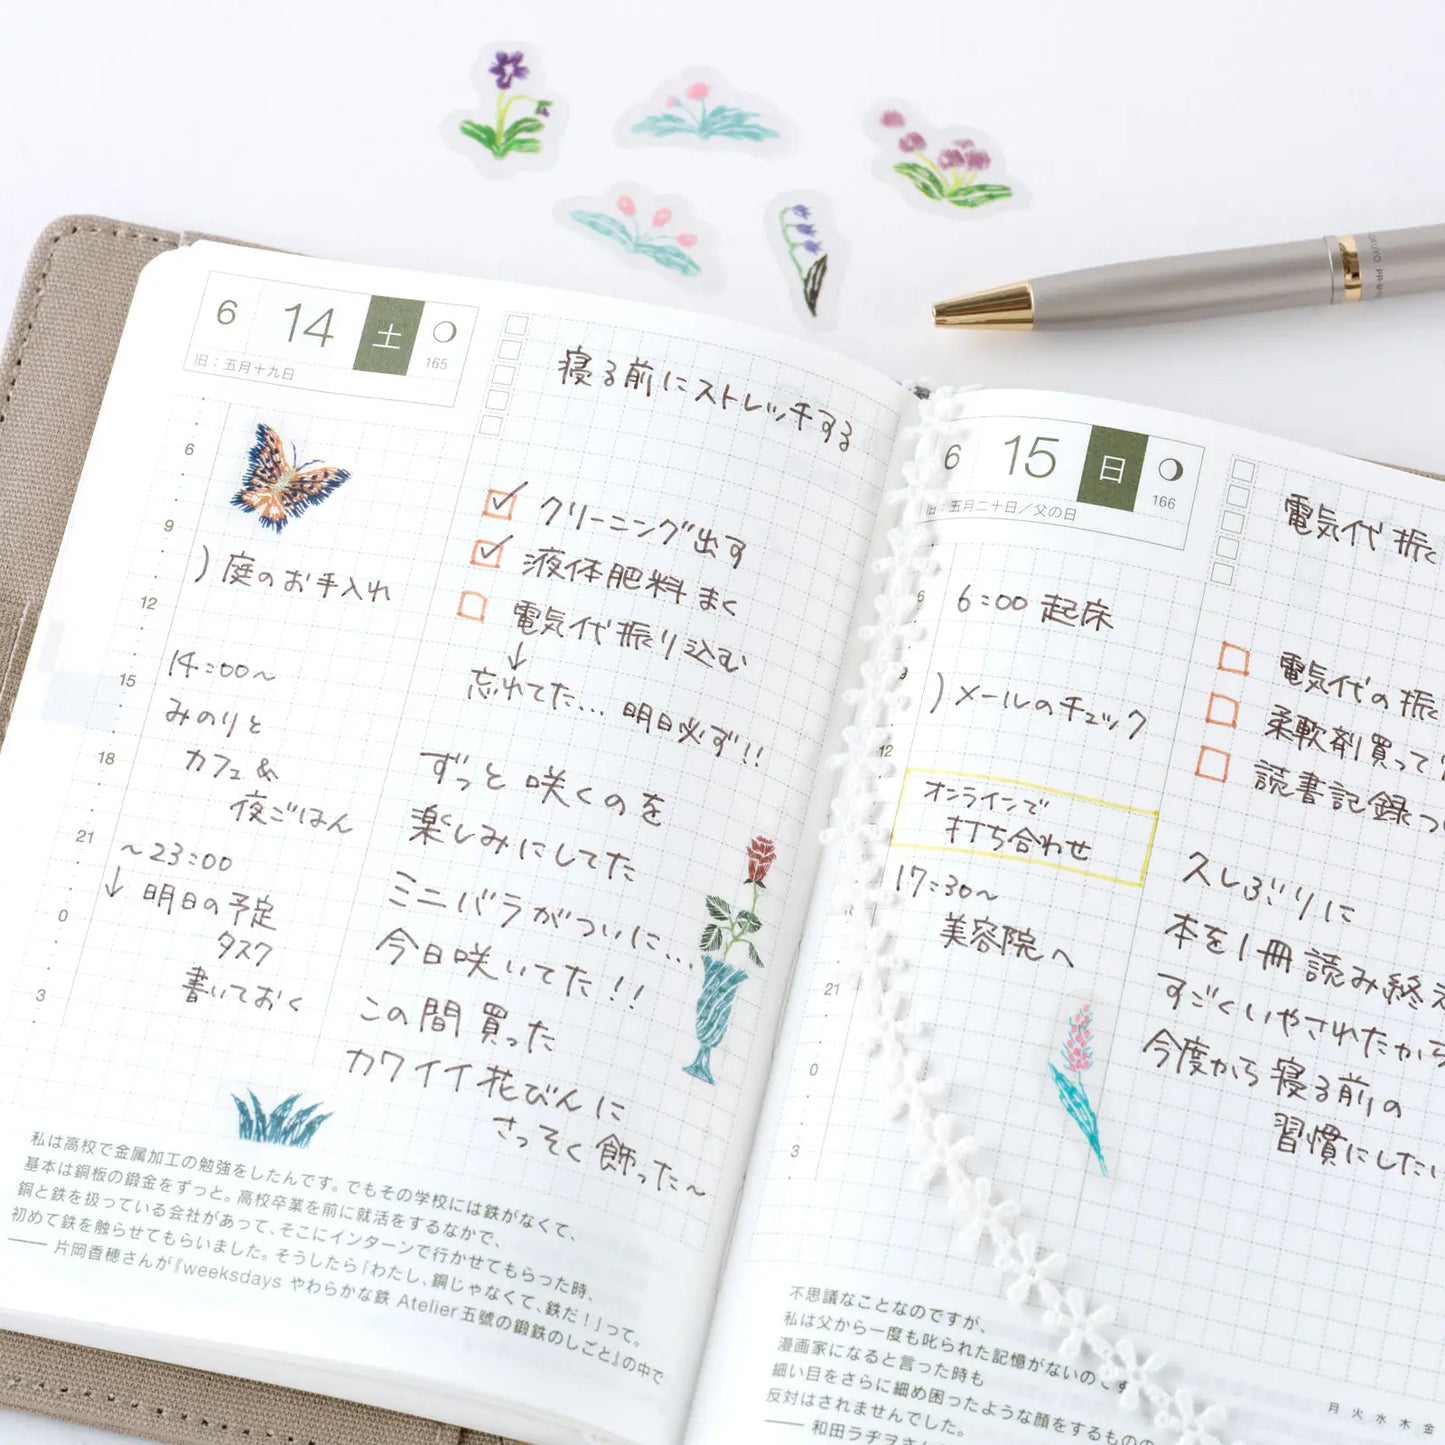 6 14 土
165
旧：五月十九日
寝る前にストレッチする
6
9
12
15
18
21
0
3
）庭のお手入れ
14:00〜
みのりと
カフェ&
夜ごはん
〜23:00
↓ 明日の予定
タスク
書いておく
クリーニング出す
液体肥料まく
電気代振り込む
↓
忘れてた… 明日必ず!!
ずっと咲くのを
楽しみにしてた
ミニバラがついに…
今日咲いてた!!
この間買った
カワイイ花びんに
さっそく飾った〜
私は高校で金属加工の勉強をしたんです。でもその学校には鉄がなくて、
基本は銅板の鍛金をずっと。高校卒業を前に就活をするなかで、
銅と鉄を扱っている会社があって、そこにインターンで行かせてもらった時、
初めて鉄を触らせてもらいました。そうしたら「わたし、銅じゃなくて、鉄だ！」って。
―― 片岡香穂さんが『weeksdays やわらかな鉄 Atelier五號の鍛鉄のしごと』の中で
6 15 日
166
旧：五月二十日／父の日
電気代 振
6
9
12
21
0
3
6:00 起床
）メールのチェック
オンラインで
打ち合わせ
17:30〜
美容院へ
電気代の振
柔軟剤買って
読書記録つ
久しぶりに
本を1冊読み終え
すごくいやされたから
今度から寝る前の
習慣にしたい
不思議なことなのですが、
私は父から一度も叱られた記憶がないのです
漫画家になると言った時も
細い目をさらに細め困ったような顔をするものの
反対はされませんでした。
―― 和田ラヂヲさん
月 火 水 木 金